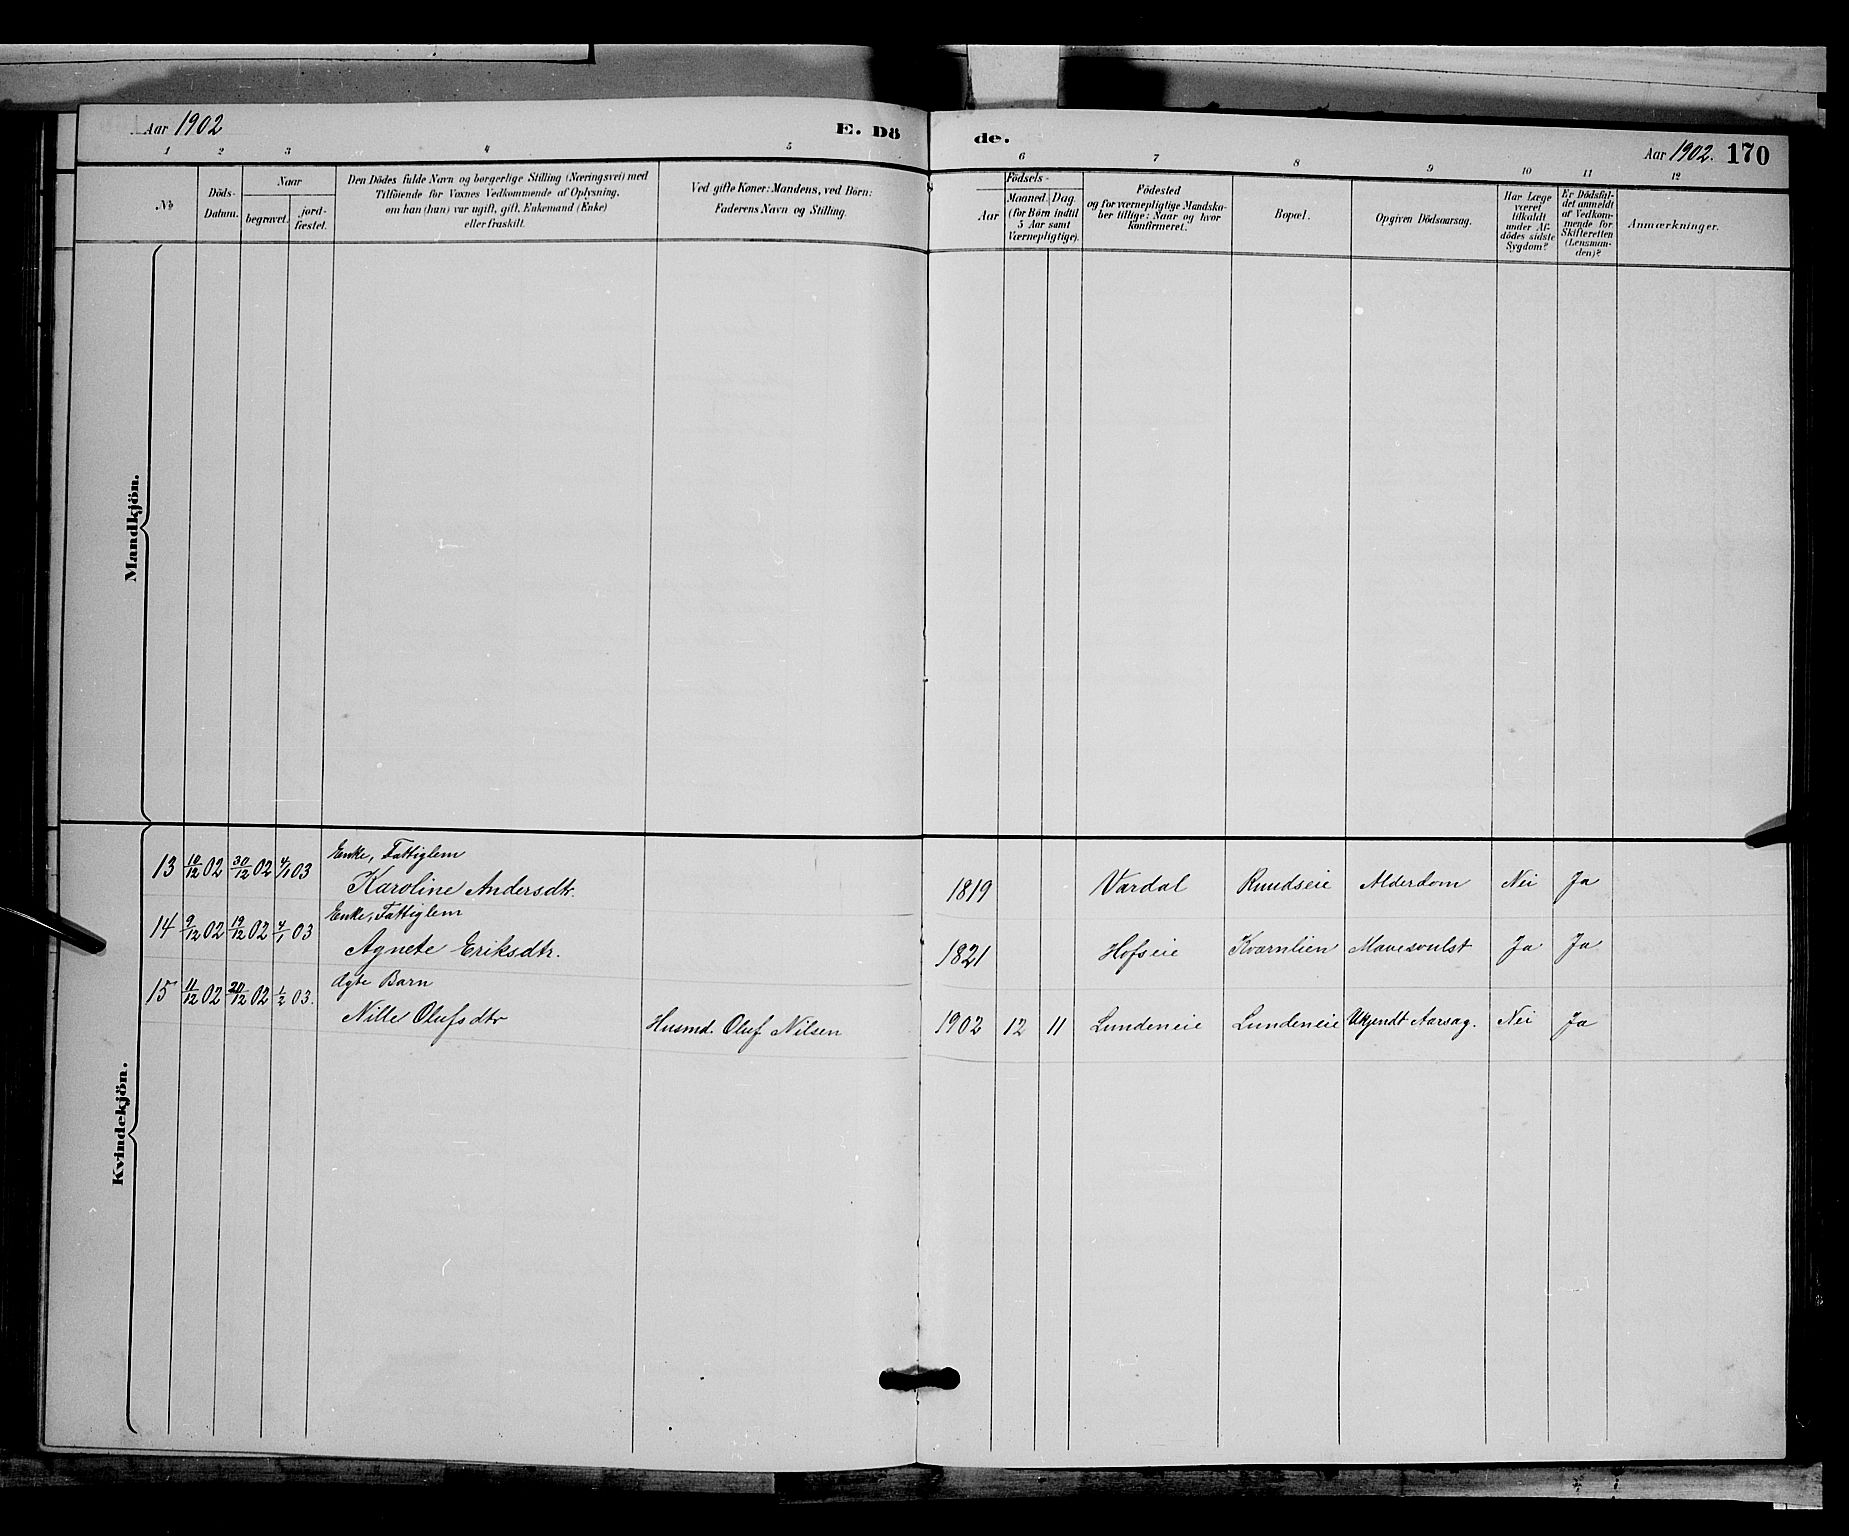 Aar 1902
E. Dö
de.
Aar 1902. 170
1 2 3 4 5
6 7 8 9 10 11 12
No
Döds-
Datum.
Naar
begravet.
jord-
fæstet.
Den Dödes fulde Navn og borgerlige Stilling (Næringsvei) med
Tilföiende for Voxnes Vedkommende af Oplysning,
om han (hun) var ugift, gift, Enkemand (Enke)
eller fraskilt.
Ved gifte Koner: Mandens, ved Börn:
Faderens Navn og Stilling.
Födsels-
Aar
Maaned. Dag.
(for Börn indtil
5 Aar samt
Værnepligtige).
Födested
og for værnepligtige Mandska-
ber tillige: Naar og hvor
konfirmeret.
Bopæl.
Opgiven Dödsaarsag.
Har Læge
været
tilkaldt
under Af-
dödes sidste
Sygdom?
Er Dödsfal-
det anmeldt
af Vedkom-
mende for
Skifteretten
(Lensman-
den)?
Anmærkninger.
Mandkjön.
Kvindekjön.
Enke, Fattiglem
13 10/12 02 30/12 02 4/1 03 Karoline Andersdtr. 1819 Vardal Ruudseie Alderdom Nei Ja
Enke, Fattiglem
14 9/12 02 19/12 02 4/1 03 Agnete Eriksdtr. 1821 Hofseie Kværnlien Mavesvulst Ja Ja
Ægte Barn
15 11/12 02 20/12 02 1/2 03. Nille Olufsdtr Husmd. Oluf Nilsen 1902 12 11 Lundeneie Lundeneie Ukjendt Aarsag. Nei Ja